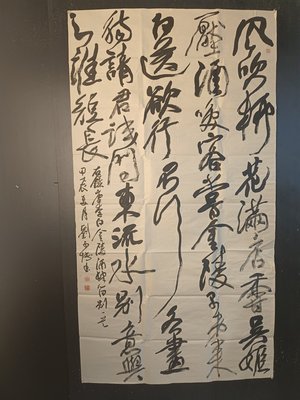 風吹柳花滿店香吳姬
壓酒喚客嘗金陵子弟來
相送欲行不行各盡
觴請君試問東流水別意與
之誰短長
李白金陵酒肆留別一首
甲辰夏月劉少書